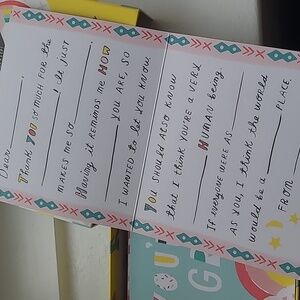 Dear
Thank YOU so much for the
_______________! It just
makes me so _______________.
Having it reminds me HOW
_______________ you are, so
I wanted to let you know
YOU should also know
that I think you're a very
_______________ HUMAN being.
If everyone were as _______________
as you, I think the world
would be a _______________ place.
From
YOU'